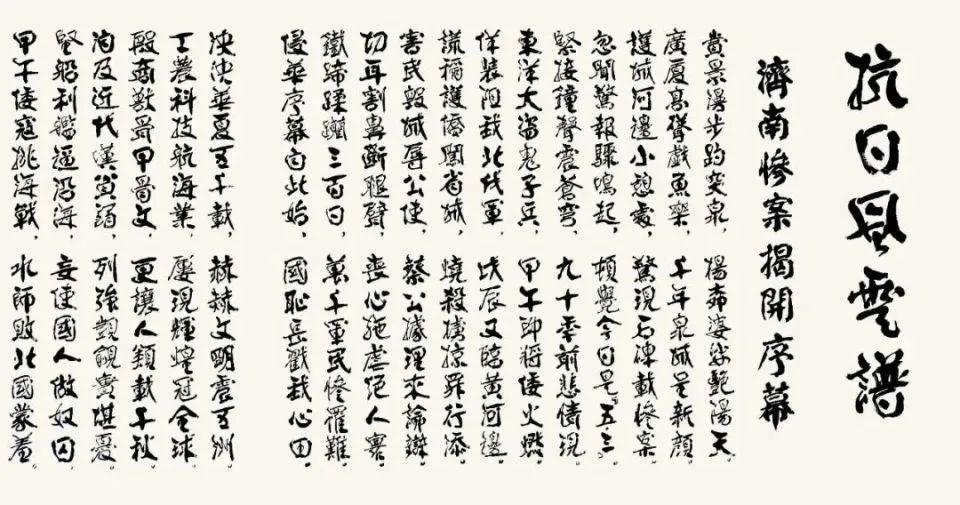 抗日風雲譜
濟南慘案揭開序幕
賞景漫步趵突泉，楊柳婆娑艷陽天。
廣廈高聳戲魚樂，千年泉城呈新顏。
護城河邊小憩處，驚現石碑載慘案。
忽聞驚報驟鳴起，頓覺今日是“五三”。
緊接鐘聲震蒼穹，九十年前悲情現。
東洋大盜鬼子兵，甲午即將倭火燃。
佯裝阻我北伐軍，戊辰又臨黃河邊。
謊稱護僑闖省城，燒殺搶掠罪行添。
害民毀城辱公使，蔡公據理來論辯。
切耳割鼻斷腿臂，喪心施虐絕人寰。
鐵蹄蹂躪三百日，萬千軍民慘罹難。
侵華序幕自此始，國恥長戳我心田。
泱泱華夏五千載，赫赫文明震五洲。
工農科技航海業，屢現輝煌冠全球。
殷商獸骨甲骨文，更讓人類載千秋。
洵及近代漢貧弱，列強覬覦實堪憂。
堅船利艦逼沿海，妄使國人做奴囚。
甲午倭寇挑海戰，水師敗北國蒙羞。